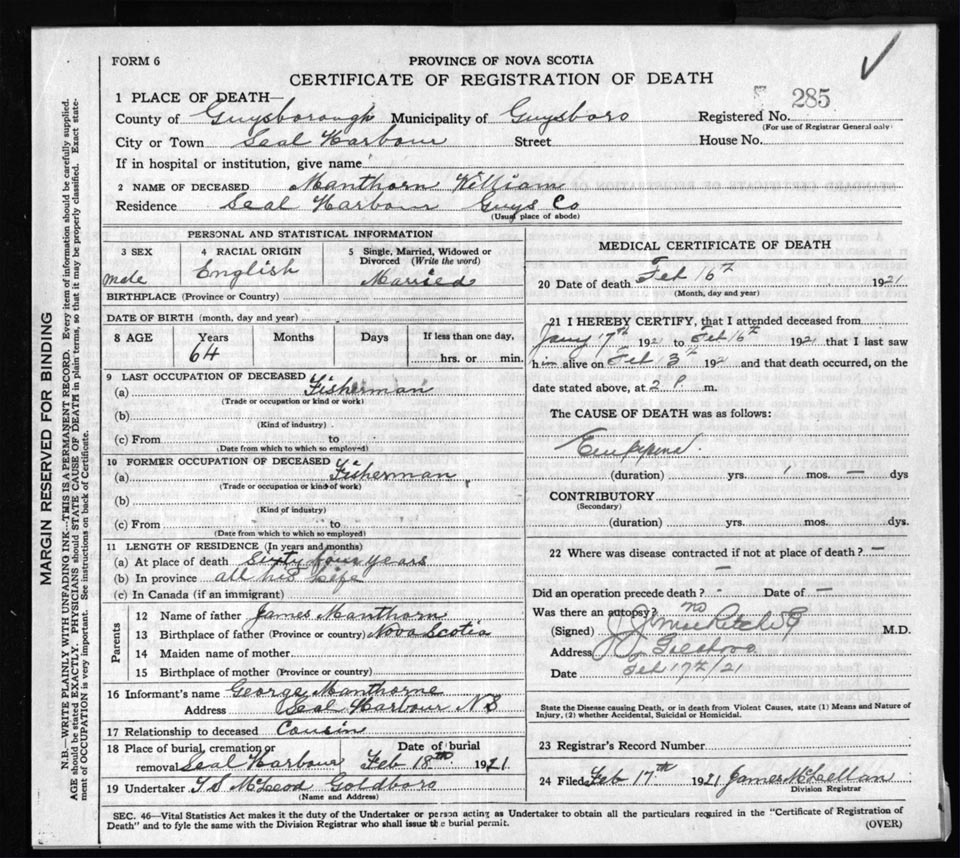 FORM 6
PROVINCE OF NOVA SCOTIA
CERTIFICATE OF REGISTRATION OF DEATH
285
1 PLACE OF DEATH—
County of Guysborough Municipality of Guysboro Registered No.
(For use of Registrar General only)
City or Town Seal Harbour Street House No.
If in hospital or institution, give name
2 NAME OF DECEASED Manthorn William
Residence Seal Harbour Guys Co
(Usual place of abode)
PERSONAL AND STATISTICAL INFORMATION
3 SEX male
4 RACIAL ORIGIN English
5 Single, Married, Widowed or Divorced (Write the word)
Married
BIRTHPLACE (Province or Country)
DATE OF BIRTH (month, day and year)
8 AGE Years Months Days If less than one day,
64 hrs. or min.
9 LAST OCCUPATION OF DECEASED
(a) Fisherman
(Trade or occupation or kind or work)
(b)
(Kind of industry)
(c) From to
(Date from which to which so employed)
10 FORMER OCCUPATION OF DECEASED
(a) Fisherman
(Trade or occupation or kind of work)
(b)
(Kind of industry)
(c) From to
(Date from which to which so employed)
11 LENGTH OF RESIDENCE (In years and months)
(a) At place of death Sixty four years
(b) In province all his life
(c) In Canada (if an immigrant)
Parents
12 Name of father James Manthorn
13 Birthplace of father (Province or country) Nova Scotia
14 Maiden name of mother
15 Birthplace of mother (Province or country)
16 Informant's name George Manthorne
Address Seal Harbour NS
17 Relationship to deceased Cousin
18 Place of burial, cremation or Date of burial
removal Seal Harbour Feb 18th 1921
19 Undertaker McLeod Goldboro
(Name and Address)
MEDICAL CERTIFICATE OF DEATH
20 Date of death Feb 16th 1921
(Month, day and year)
21 I HEREBY CERTIFY, that I attended deceased from
Jany 17th 1921 to Feb 16th 1921 that I last saw
him alive on Feb 3rd 1921 and that death occurred, on the
date stated above, at 2 P m.
The CAUSE OF DEATH was as follows:
(duration) yrs. 1 mos. — dys
CONTRIBUTORY
(Secondary)
(duration) yrs. mos. dys.
22 Where was disease contracted if not at place of death? —
—
Did an operation precede death? - Date of —
Was there an autopsy? no
(Signed) M.D.
Address
Date Feb 17th/21
State the Disease causing Death, or in death from Violent Causes, state (1) Means and Nature of
Injury, (2) whether Accidental, Suicidal or Homicidal.
23 Registrar's Record Number
24 Filed Feb 17th 1921 James McLellan
Division Registrar
SEC. 46—Vital Statistics Act makes it the duty of the Undertaker or person acting as Undertaker to obtain all the particulars required in the "Certificate of Registration of
Death" and to fyle the same with the Division Registrar who shall issue the burial permit. (OVER)
MARGIN RESERVED FOR BINDING
N.B.—WRITE PLAINLY WITH UNFADING INK—THIS IS A PERMANENT RECORD. Every item of information should be carefully supplied.
AGE should be stated EXACTLY. PHYSICIANS should STATE CAUSE OF DEATH in plain terms, so that it may be properly classified. Exact state-
ment of OCCUPATION is very important. See instructions on back of Certificate.